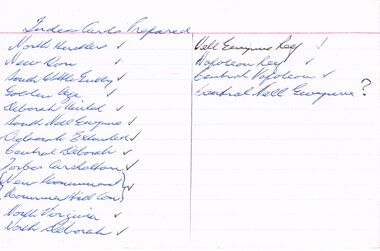 Index Cards Prepared
North Hustlers ✓
New Don ✓
South Wattle Gully ✓
Golden Age ✓
Deborah United ✓
South Nell Gwynne ✓
Deborah Extended ✓
Central Deborah ✓
Forbes Carshalton ✓
(New Monument) ✓
(Monument Hill Con)
North Virginia ✓
North Deborah ✓
Nell Gwynne Reef !
Napoleon Reef ✓
Central Napoleon ✓
Central Nell Gwynne ?